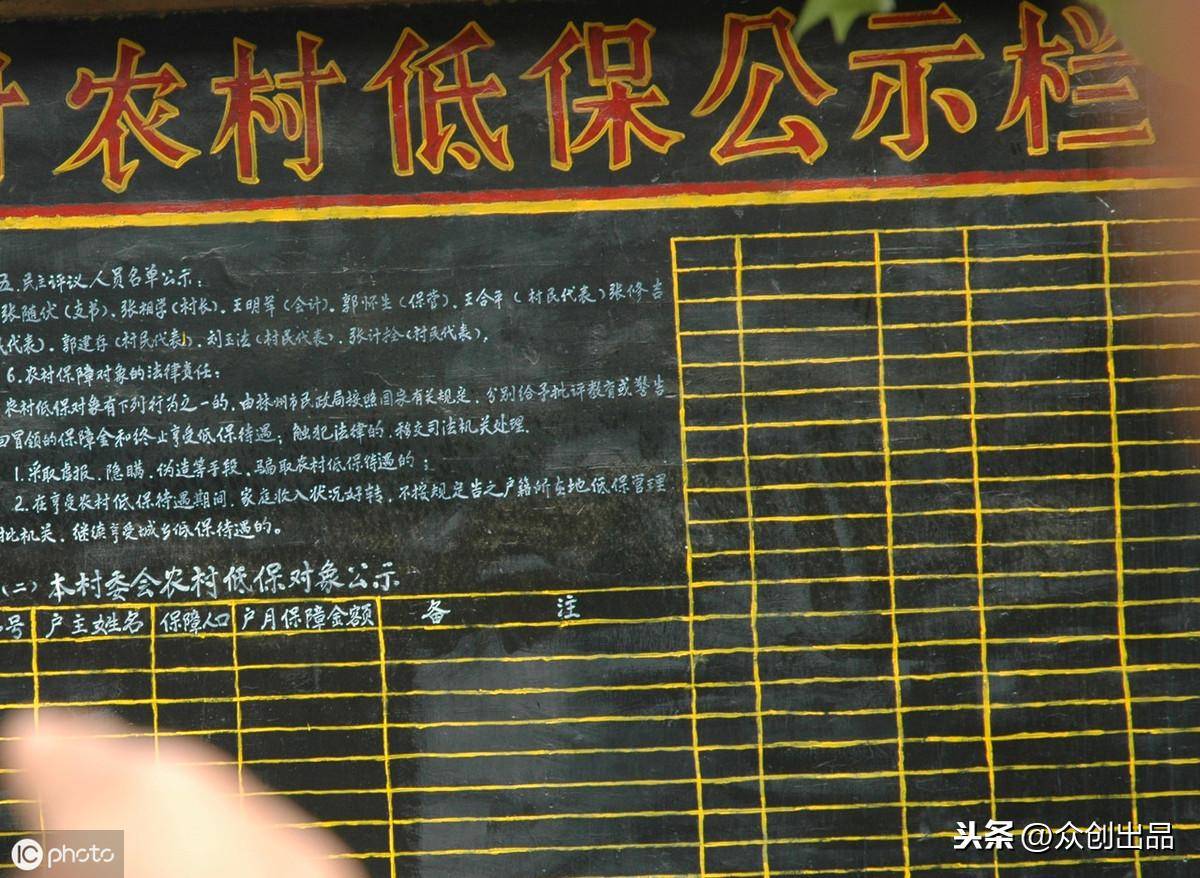 村农村低保公示栏
五.民主评议人员名单公示:
张随伏(支书)、张相学(村长)、王明军(会计)、郭怀生(保管)、王合平(村民代表)张修吉
民代表)、郭建存(村民代表)、刘玉法(村民代表)、张计拴(村民代表)。
6.农村保障对象的法律责任:
农村低保对象有下列行为之一的,由林州市民政局按照国家有关规定,分别给予批评教育或警告
回冒领的保障金和终止享受低保待遇;触犯法律的,移交司法机关处理.
1.采取虚报、隐瞒、伪造等手段、骗取农村低保待遇的;
2.在享受农村低保待遇期间、家庭收入状况好转、不按规定告之户籍所在地低保管理
批机关、继续享受城乡低保待遇的。
(二)本村委会农村低保对象公示
号 户主姓名 保障人口 户月保障金额 备 注
IC photo
头条 @众创出品